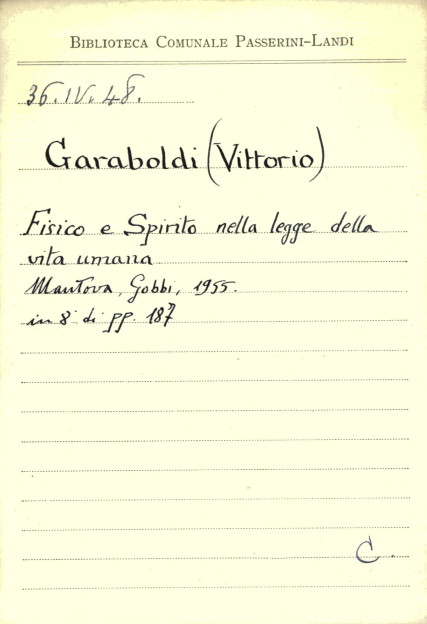 BIBLIOTECA COMUNALE PASSERINI-LANDI
36.IV.48.
Garaboldi (Vittorio)
Fisico e Spirito nella legge della
vita umana
Mantova, Gobbi, 1955.
in 8° di pp. 187
C.